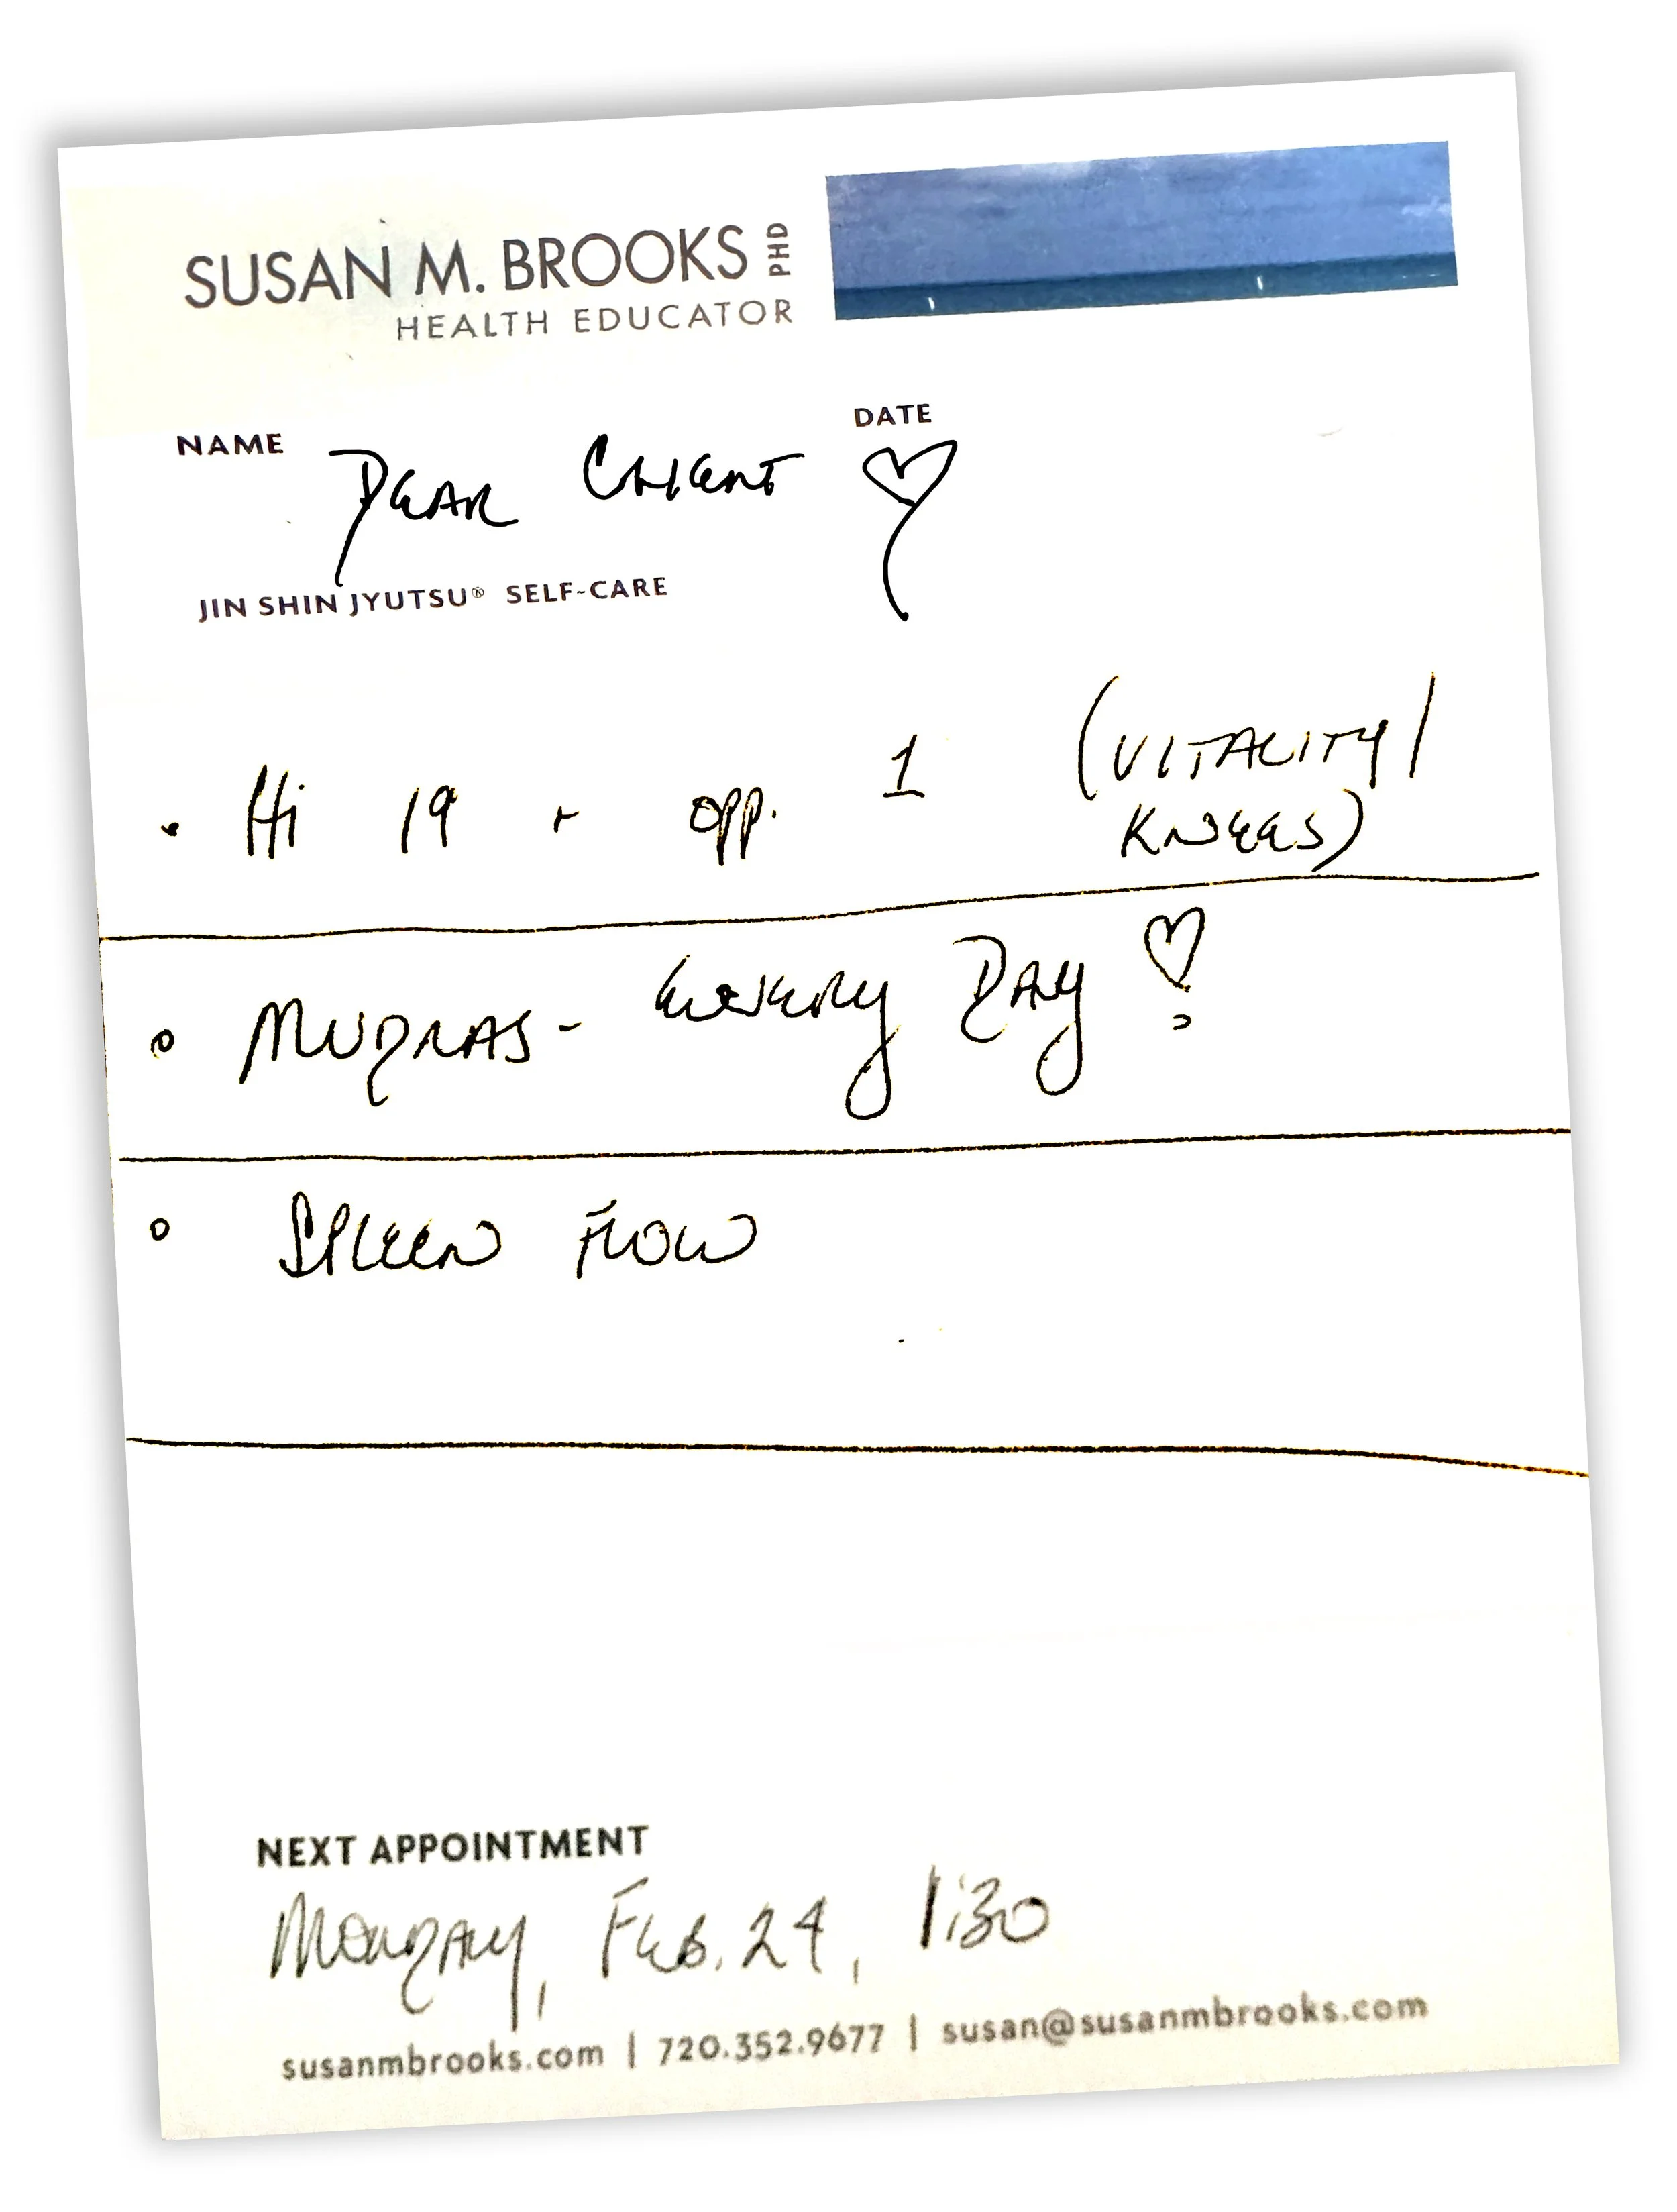 SUSAN M. BROOKS PHD
HEALTH EDUCATOR
NAME DEAR CLIENT DATE
JIN SHIN JYUTSU® SELF-CARE
• Hi 19 + opp. 1 (VITALITY/
KNEES)
• MUDRAS - EVERY DAY
• SPLEEN FLOW
NEXT APPOINTMENT
MONDAY, FEB. 24, 1:30
susanmbrooks.com | 720.352.9677 | susan@susanmbrooks.com